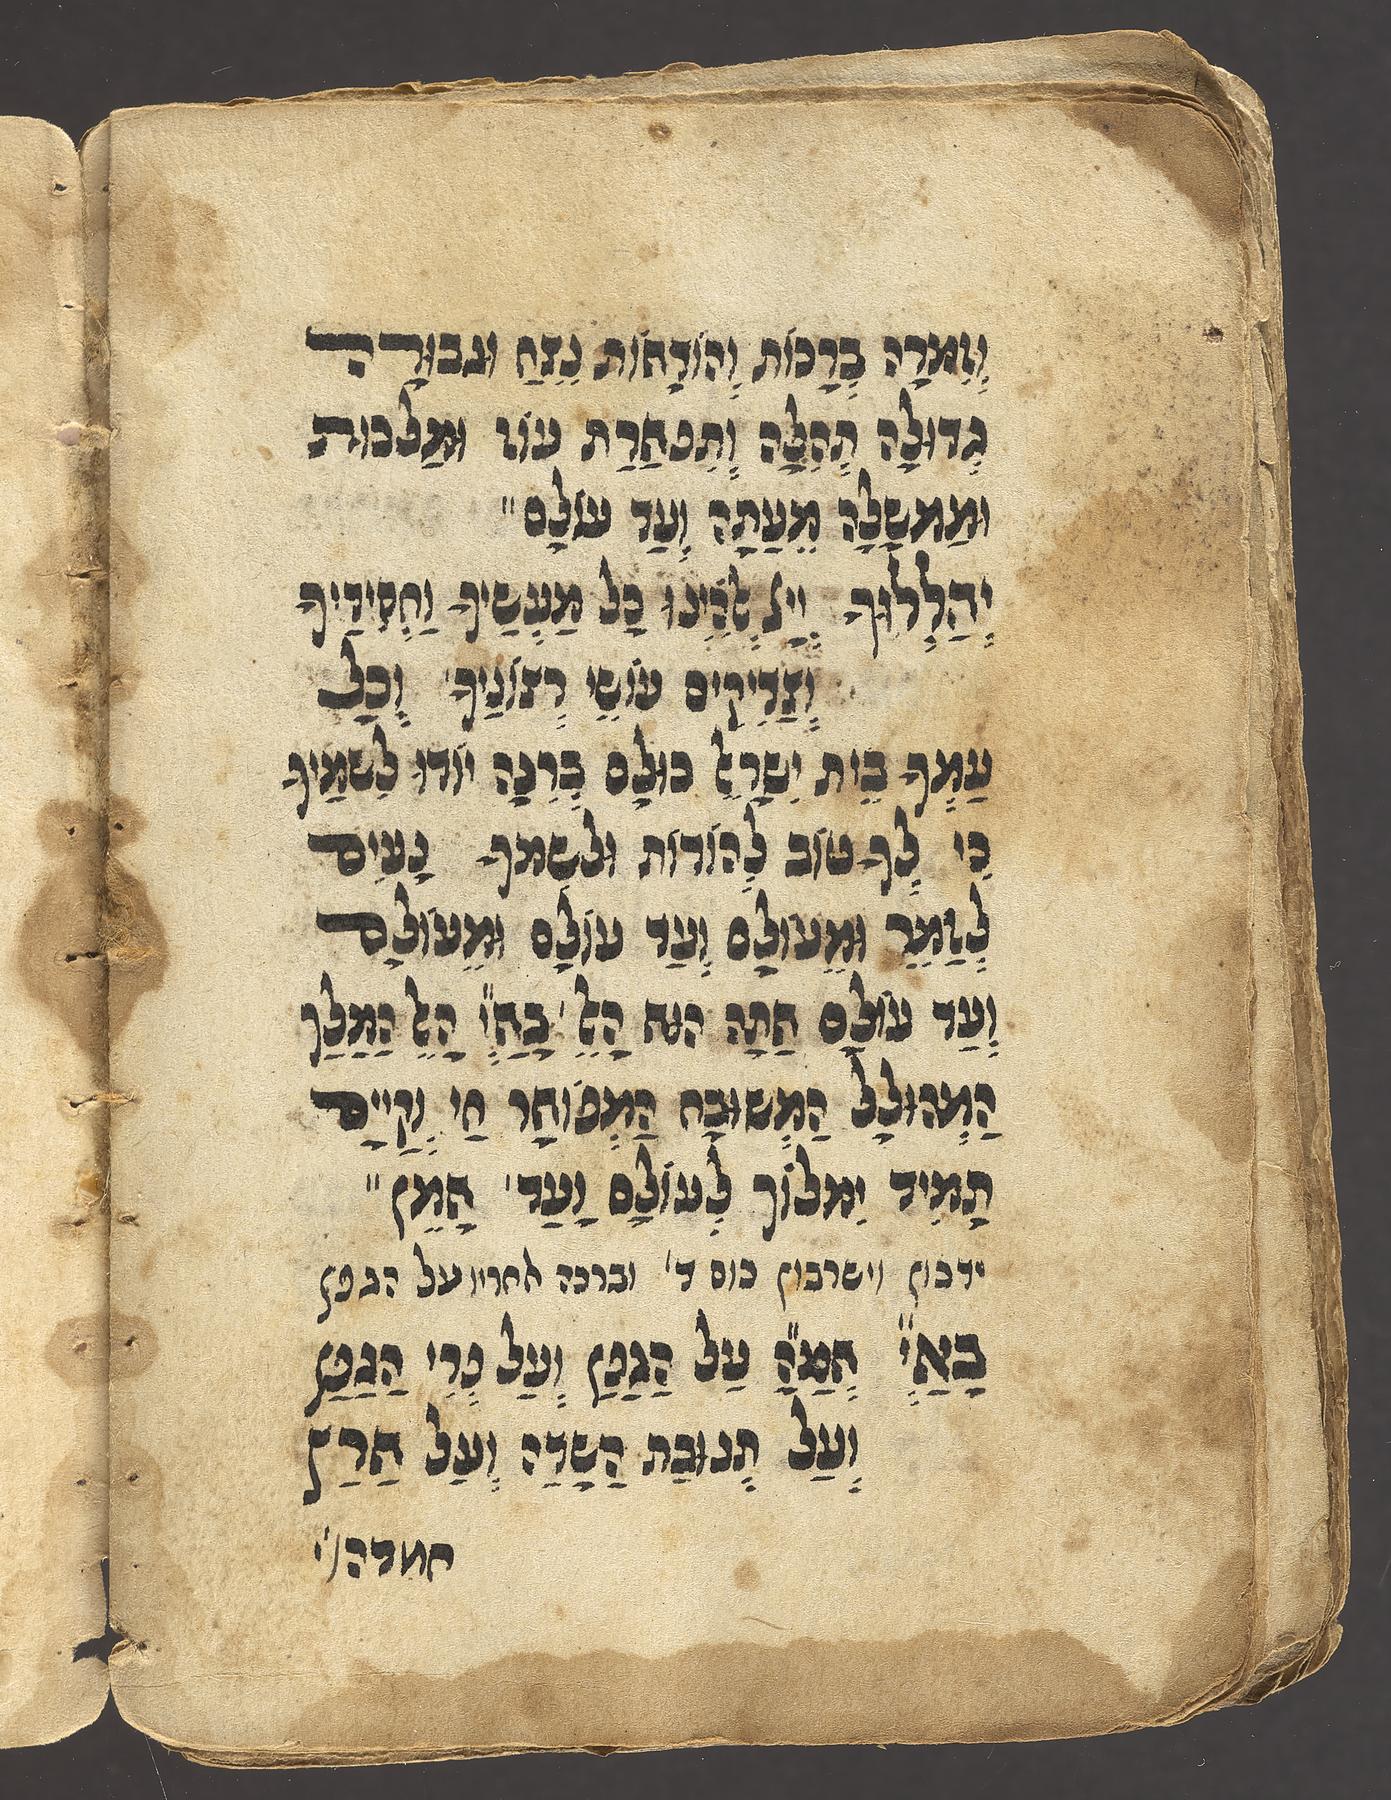 וְזִמְרָה בְּרָכוֹת וְהוֹדָאוֹת נֵצַח וּגבוּרָה
גְדוּלָה תְהִלָה וְתִפאַרַת עוֹז וּמַלכות
וּמַמשָלָה מֵעַתָה וְעַד עוֹלָם"
יְהַלְלוּךָ יְיָ אֱלֹהֵינוּ כָל מַעֲשֶיךָ וַחֲסִידֶיךָ
וְצַדִיקִים עוֹשֵי רְצוֹנֶיךָ וְכָל
עַמְךָ בֵית יִשְרָאֵל כּוּלָם בְרִנָה יוֹדוּ לִשמֶיךָ
כִי לְךָ טוֹב לְהוֹדוֹת וּלשִמךָ נָעִים
לְזַמֵר וּמֵעוֹלָם וְעַד עוֹלָם וּמֵעוֹלָם
וְעַד עוֹלָם אַתָה הוּא הָאֵל' בָּאַ"יְ הָאֵל הַמֶלֶךְ
הַמְהוּלָל הַמְשוּבָח הַמְפוֹאָר חַי וְקַייָם
תָמִיד יִמלוֹךְ לְעוֹלָם וָעֶד' אָמֵן"
ידכון וישרבון כוס ד' וברכה אחריו על הגפן
בָּאַ"יְ אֱמַ"הָ עַל הַגֶפֶן וְעַל פְרִי הַגֶפֶן
וְעַל תְנוּבַת הַשָדֶה וְעַל אֶרֶץ
חמדה